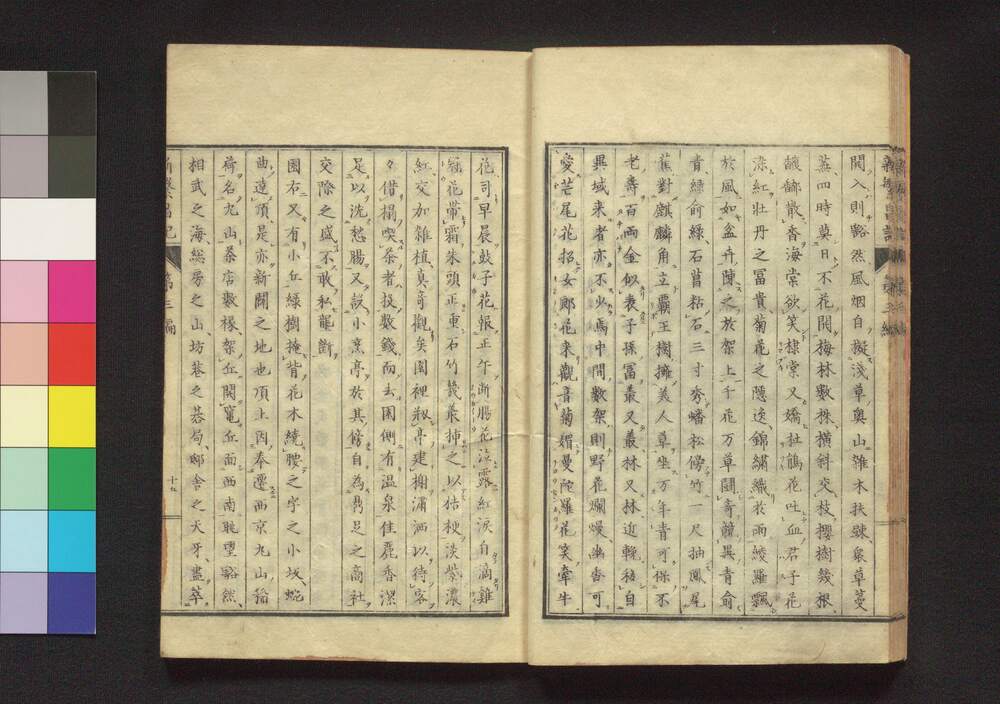 開入則豁然風烟自擬浅草奥山雑木扶踈衆草蔓
蕪四時莫日不花開梅林數株横斜交枝櫻樹幾根
馥郁散香海棠欲笑棣棠又嬌杜鵑花吐血君子花
染紅牡丹之冨貴菊花之隱逸錦繍織於雨綾羅飄
於風如盆卉陳之於架上千花万草鬪奇競異青俞
青緑俞緑石菖粘石三寸秀蟠松傍竹一尺抽鳳尾
蕉對麒麟角立覇王樹擁美人草坐万年青可保不
老壽百両金似表子孫冨最又叢林又林近輓秘自
異域来者亦不少焉中間數架則野花爛熳幽香可
愛苦尾花招女郎花来觀音菊媚曼陀羅花笑牽牛
花司早晨鼓子花報正午断腸花泣露紅涙自滴雞
冠花帶霜朱頭正重石竹幾叢挿之以桔梗淡紫濃
紅交加雑植真奇觀矣園裡敞亭建棚瀟洒以待客
々借榻喫茶者投數錢而去園側有温泉佳麗香潔
足以洗愁腸又設小烹亭於其傍自為鼎足之高社
交際之盛不敢私壟断
園右又有小丘緑樹掩背花木繞腰之字之小坂蜿
曲達頂是亦新開之地也頂上因奉遷西京九山稲
荷名九山茶店數椽架丘開竃丘面西南眺望豁然
相武之海総房之山坊巷之碁局邸舎之天牙盡萃
新繁昌記
第三編
十九